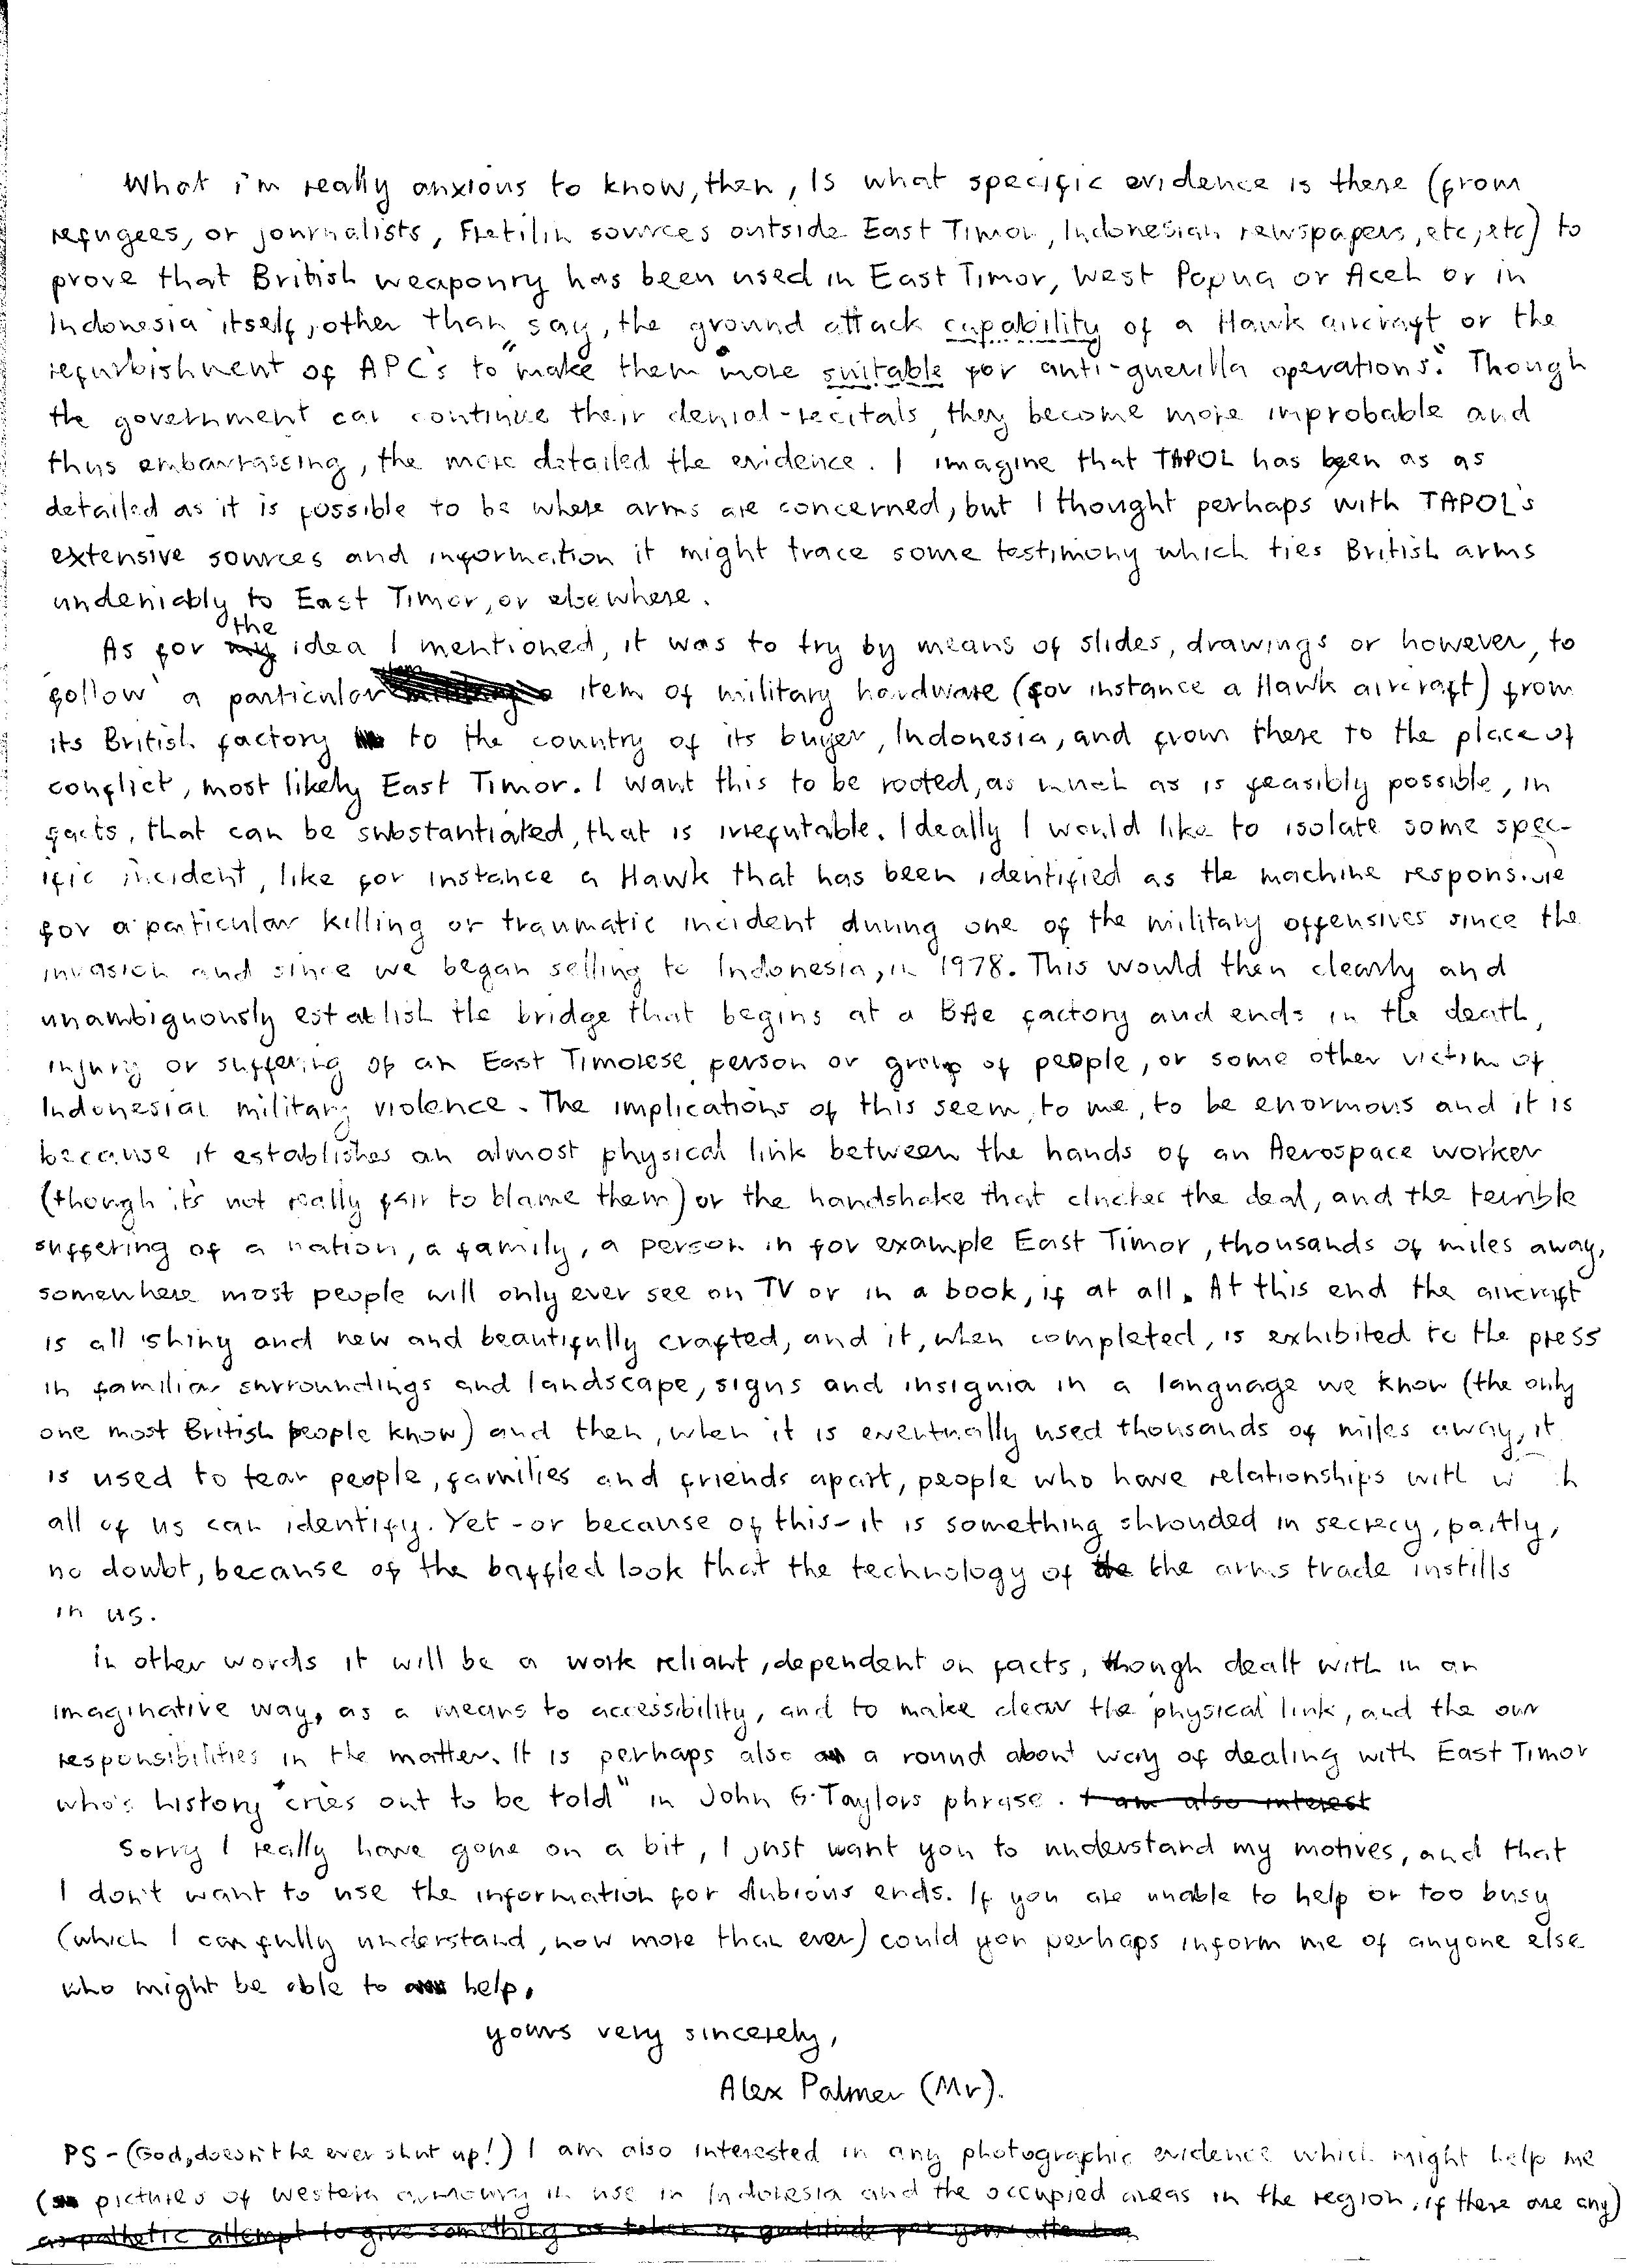 What i'm really anxious to know, then, Is what specific evidence is there (from
refugees, or journalists, Fretilin sources outside East Timor, Indonesian newspapers, etc, etc) to
prove that British weaponry has been used in East Timor, West Papua or Aceh or in
Indonesia itself, other than say, the ground attack capability of a Hawk aircraft or the
refurbishment of APC's to "make them more suitable for anti-guerilla operations". Though
the government can continue their denial-recitals, they become more improbable and
thus embarrassing, the more detailed the evidence. I imagine that TAPOL has been as as
detailed as it is possible to be where arms are concerned, but I thought perhaps with TAPOL's
extensive sources and information it might trace some testimony which ties British arms
undeniably to East Timor, or elsewhere.
As for my the idea I mentioned, it was to try by means of slides, drawings or however, to
'follow' a particular item of military hardware (for instance a Hawk aircraft) from
its British factory to the country of its buyer, Indonesia, and from there to the place of
conflict, most likely East Timor. I want this to be rooted, as much as is feasibly possible, in
facts, that can be substantiated, that is irrefutable. Ideally I would like to isolate some spec-
ific incident, like for instance a Hawk that has been identified as the machine responsible
for a particular killing or traumatic incident during one of the military offensives since the
invasion and since we began selling to Indonesia, in 1978. This would then clearly and
unambiguously establish the bridge that begins at a BAe factory and ends in the death,
injury or suffering of an East Timorese person or group of people, or some other victim of
Indonesian military violence. The implications of this seem, to me, to be enormous and it is
because it establishes an almost physical link between the hands of an Aerospace worker
(though it's not really fair to blame them) or the handshake that clinches the deal, and the terrible
suffering of a nation, a family, a person in for example East Timor, thousands of miles away,
somewhere most people will only ever see on TV or in a book, if at all. At this end the aircraft
is all shiny and new and beautifully crafted, and it, when completed, is exhibited to the press
in familiar surroundings and landscape, signs and insignia in a language we know (the only
one most British people know) and then, when it is eventually used thousands of miles away, it
is used to tear people, families and friends apart, people who have relationships with
all of us can identify. Yet - or because of this - it is something shrouded in secrecy, partly,
no doubt, because of the baffled look that the technology of the the arms trade instills
in us.
in other words it will be a work reliant, dependent on facts, though dealt with in an
imaginative way, as a means to accessibility, and to make clear the 'physical' link, and the our
responsibilities in the matter. It is perhaps also a round about way of dealing with East Timor
who's history "cries out to be told" in John G. Taylors phrase. I am also interest
Sorry I really have gone on a bit, I just want you to understand my motives, and that
I don't want to use the information for dubious ends. If you are unable to help or too busy
(which I can fully understand, now more than ever) could you perhaps inform me of anyone else
who might be able to help.
yours very sincerely,
Alex Palmer (Mr).
PS - (God, doesn't he ever shut up!) I am also interested in any photographic evidence which might help me
(pictures of western armoury in use in Indonesia and the occupied areas in the region, if there are any)
as pathetic attempt to give something as token of gratitude for your attention